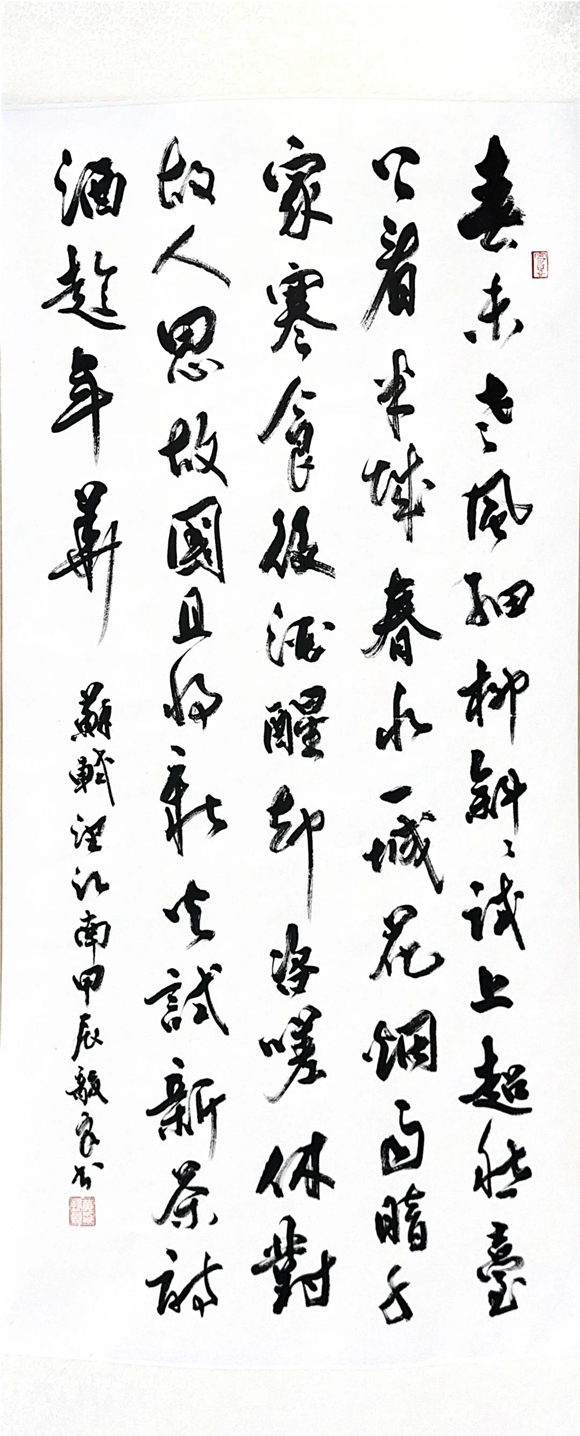 春未老風細柳斜〻試上超然臺
看半壕春水一城花烟雨暗千
家寒食後酒醒却咨嗟休對
故人思故國且將新火試新茶詩
酒趁年華
蘇軾望江南甲辰毅書